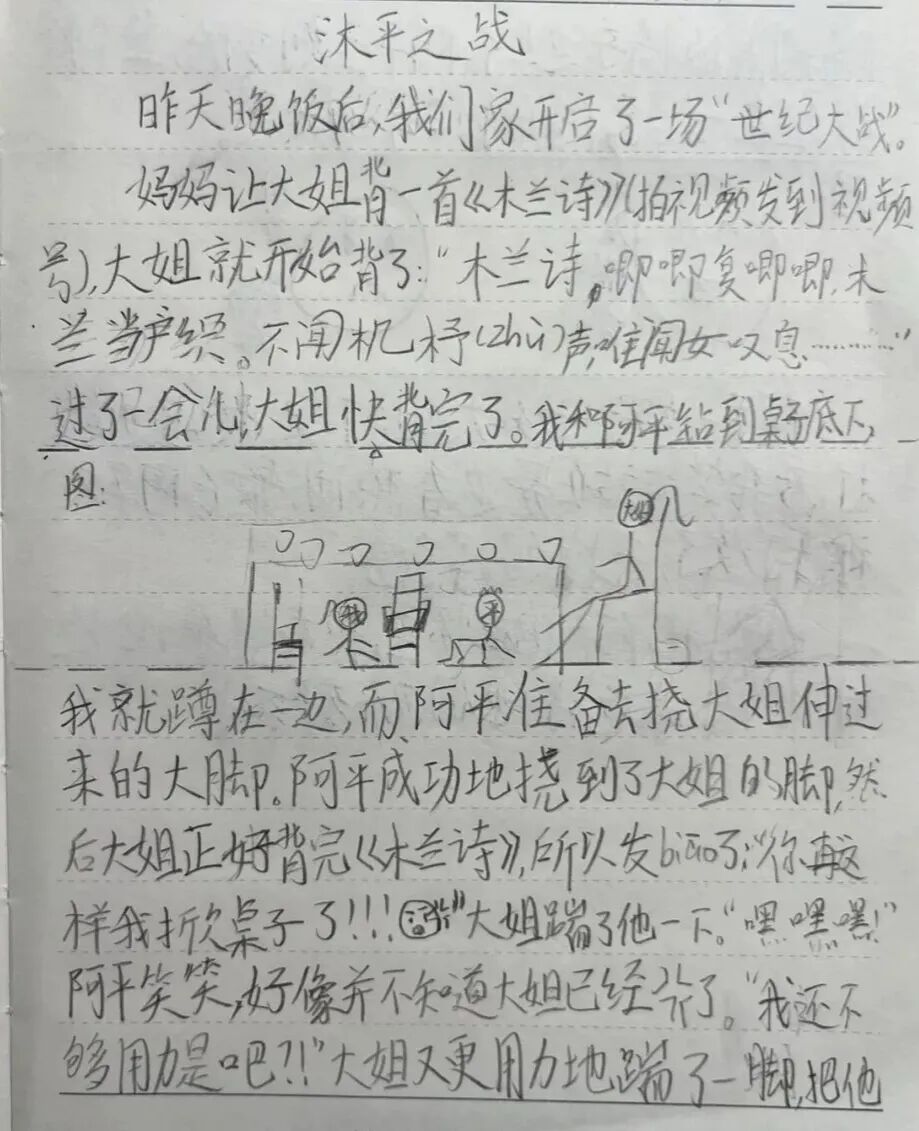 沐平之战
昨天晚饭后,我们家开启了一场“世纪大战”。
妈妈让大姐背一首《木兰诗》(拍视频发到视频
号),大姐就开始背了:“木兰诗,唧唧复唧唧,木
兰当户织。不闻机杼(zhù)声,唯闻女叹息………”
过了一会儿,大姐快背完了。我和阿平钻到桌子底下,
图:
大姐
我 平
我就蹲在一边,而阿平准备去挠大姐伸过
来的大脚。阿平成功地挠到了大姐的脚,然
后大姐正好背完《木兰诗》,所以发biāo了:“你再这
样我掀桌子了!!!”大姐踹了他一下。“嘿嘿嘿!”
阿平笑笑,好像并不知道大姐已经了。“我还不
够用力是吧?!”大姐又更用力地踹了一脚,把他